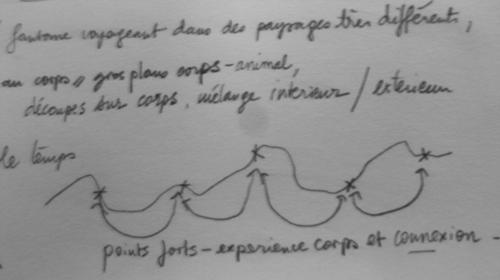 fantome voyageant dans des paysages très différents,
au corps // gros plans corps-animal,
découpes sur corps, mélange interieur / exterieur
le temps
points forts - experience corps et connexion -